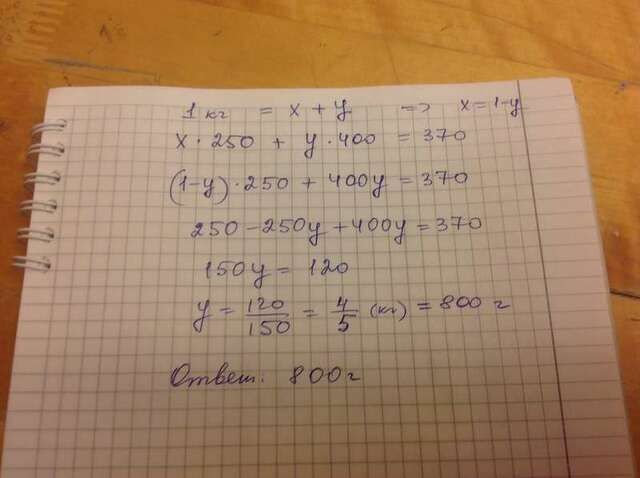 1 кг = x + y => x = 1-y
x · 250 + y · 400 = 370
(1-y) · 250 + 400y = 370
250 - 250y + 400y = 370
150y = 120
y = 120/150 = 4/5 (кг) = 800 г
Ответ. 800 г